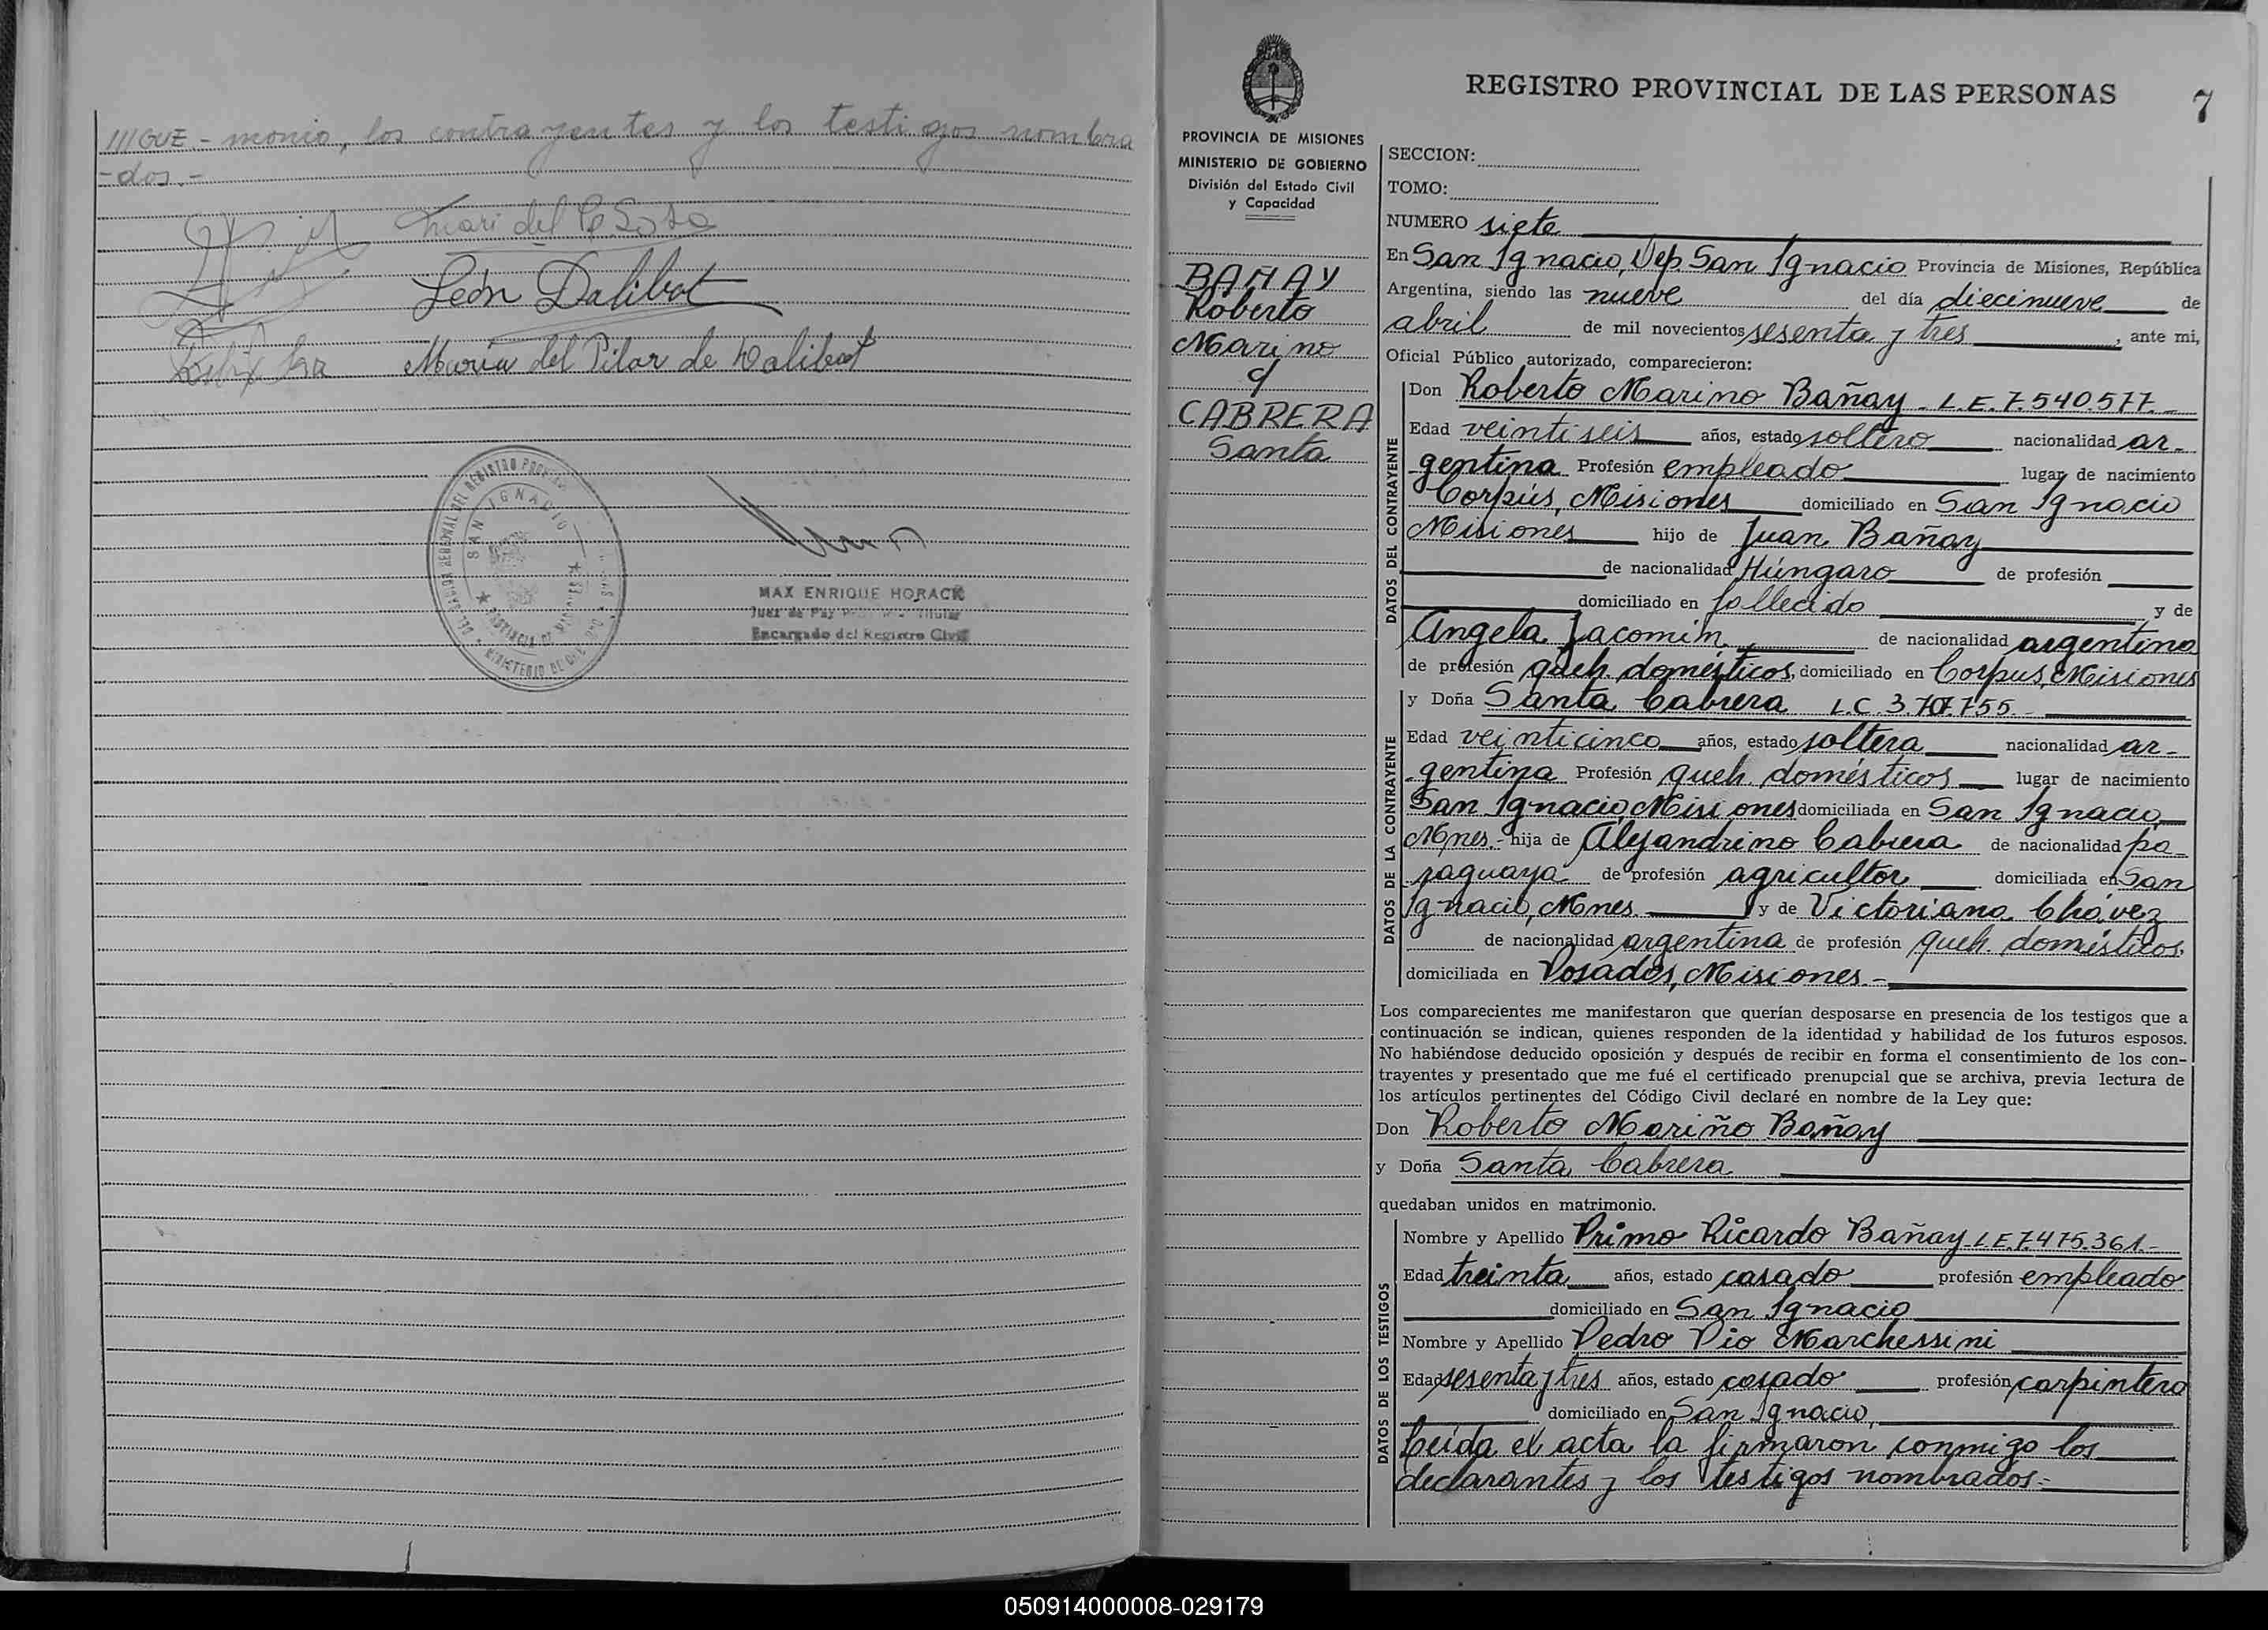 ///GUE.- monio, los contrayentes y los testigos nombra
-dos.-
León Dalibot
María del Pilar de Dalibot
SAN IGNACIO
MAX ENRIQUE HORACK
Juez de Paz Titular
Encargado del Registro Civil
PROVINCIA DE MISIONES
MINISTERIO DE GOBIERNO
División del Estado Civil
y Capacidad
BAÑAY
Roberto
Marino
y
CABRERA
Santa
REGISTRO PROVINCIAL DE LAS PERSONAS
7
SECCION:
TOMO:
NUMERO siete
En San Ignacio, Dep. San Ignacio Provincia de Misiones, República
Argentina, siendo las nueve del día diecinueve de
abril de mil novecientos sesenta y tres, ante mi,
Oficial Público autorizado, comparecieron:
DATOS DEL CONTRAYENTE
Don Roberto Marino Bañay - L.E. 7.540.577.-
Edad veintiseis años, estado soltero nacionalidad ar-
gentina Profesión empleado lugar de nacimiento
Corpús, Misiones domiciliado en San Ignacio
Misiones hijo de Juan Bañay
de nacionalidad Húngaro de profesión
domiciliado en fallecido y de
Angela Jacomin de nacionalidad argentina
de profesión queh. domésticos, domiciliado en Corpus, Misiones
DATOS DE LA CONTRAYENTE
y Doña Santa Cabrera L.C. 3.707.755.-
Edad veinticinco años, estado soltera nacionalidad ar-
gentina Profesión queh. domésticos lugar de nacimiento
San Ignacio, Misiones domiciliada en San Ignacio,
Mnes.- hija de Alejandrino Cabrera de nacionalidad pa-
raguaya de profesión agricultor domiciliada en San
Ignacio, Mnes. y de Victoriana Chávez
de nacionalidad argentina de profesión queh. domésticos,
domiciliada en Posadas, Misiones.-
Los comparecientes me manifestaron que querían desposarse en presencia de los testigos que a
continuación se indican, quienes responden de la identidad y habilidad de los futuros esposos.
No habiéndose deducido oposición y después de recibir en forma el consentimiento de los con-
trayentes y presentado que me fué el certificado prenupcial que se archiva, previa lectura de
los artículos pertinentes del Código Civil declaré en nombre de la Ley que:
Don Roberto Mariño Bañay
y Doña Santa Cabrera
quedaban unidos en matrimonio.
DATOS DE LOS TESTIGOS
Nombre y Apellido Primo Ricardo Bañay L.E. 7.475.361.-
Edad treinta años, estado casado profesión empleado
domiciliado en San Ignacio
Nombre y Apellido Pedro Pio Marchessini
Edad sesenta y tres años, estado casado profesión carpintero
domiciliado en San Ignacio,
Leída el acta la firmaron conmigo los
declarantes y los testigos nombrados.-
050914000008-029179